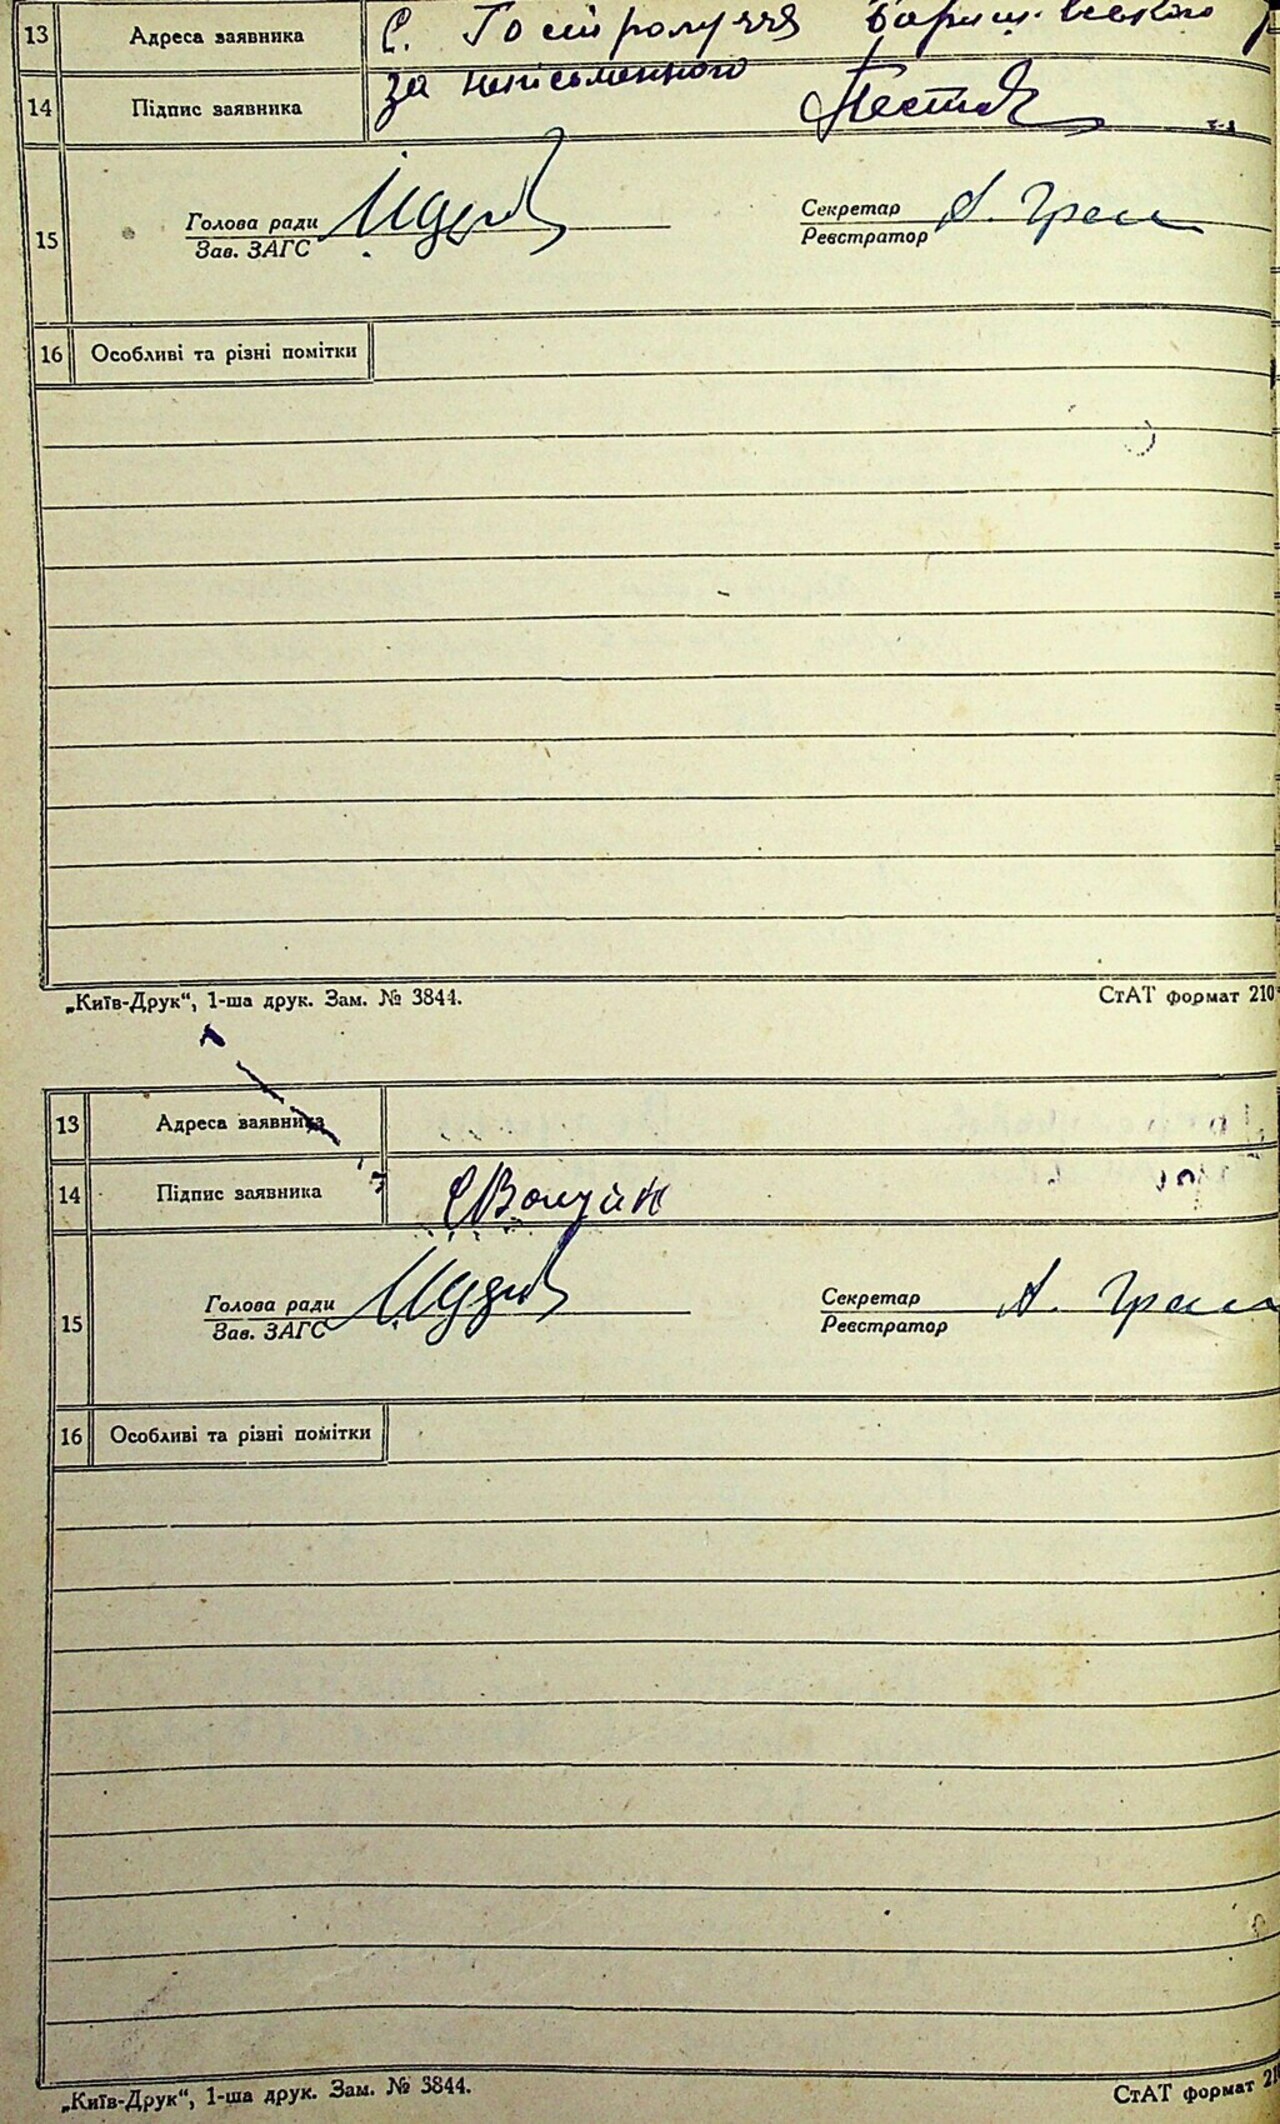 13 Адреса заявника С. Гостролуччя Бориш. вського р
14 Підпис заявника за неписьменного
15 Голова ради Секретар А.
Зав. ЗАГС Реєстратор
16 Особливі та різні помітки
„Київ-Друк“, 1-ша друк. Зам. № 3844. СтАТ формат 210
13 Адреса заявника
14 Підпис заявника
15 Голова ради Секретар А.
Зав. ЗАГС Реєстратор
16 Особливі та різні помітки
„Київ-Друк“, 1-ша друк. Зам. № 3844. СтАТ формат 21